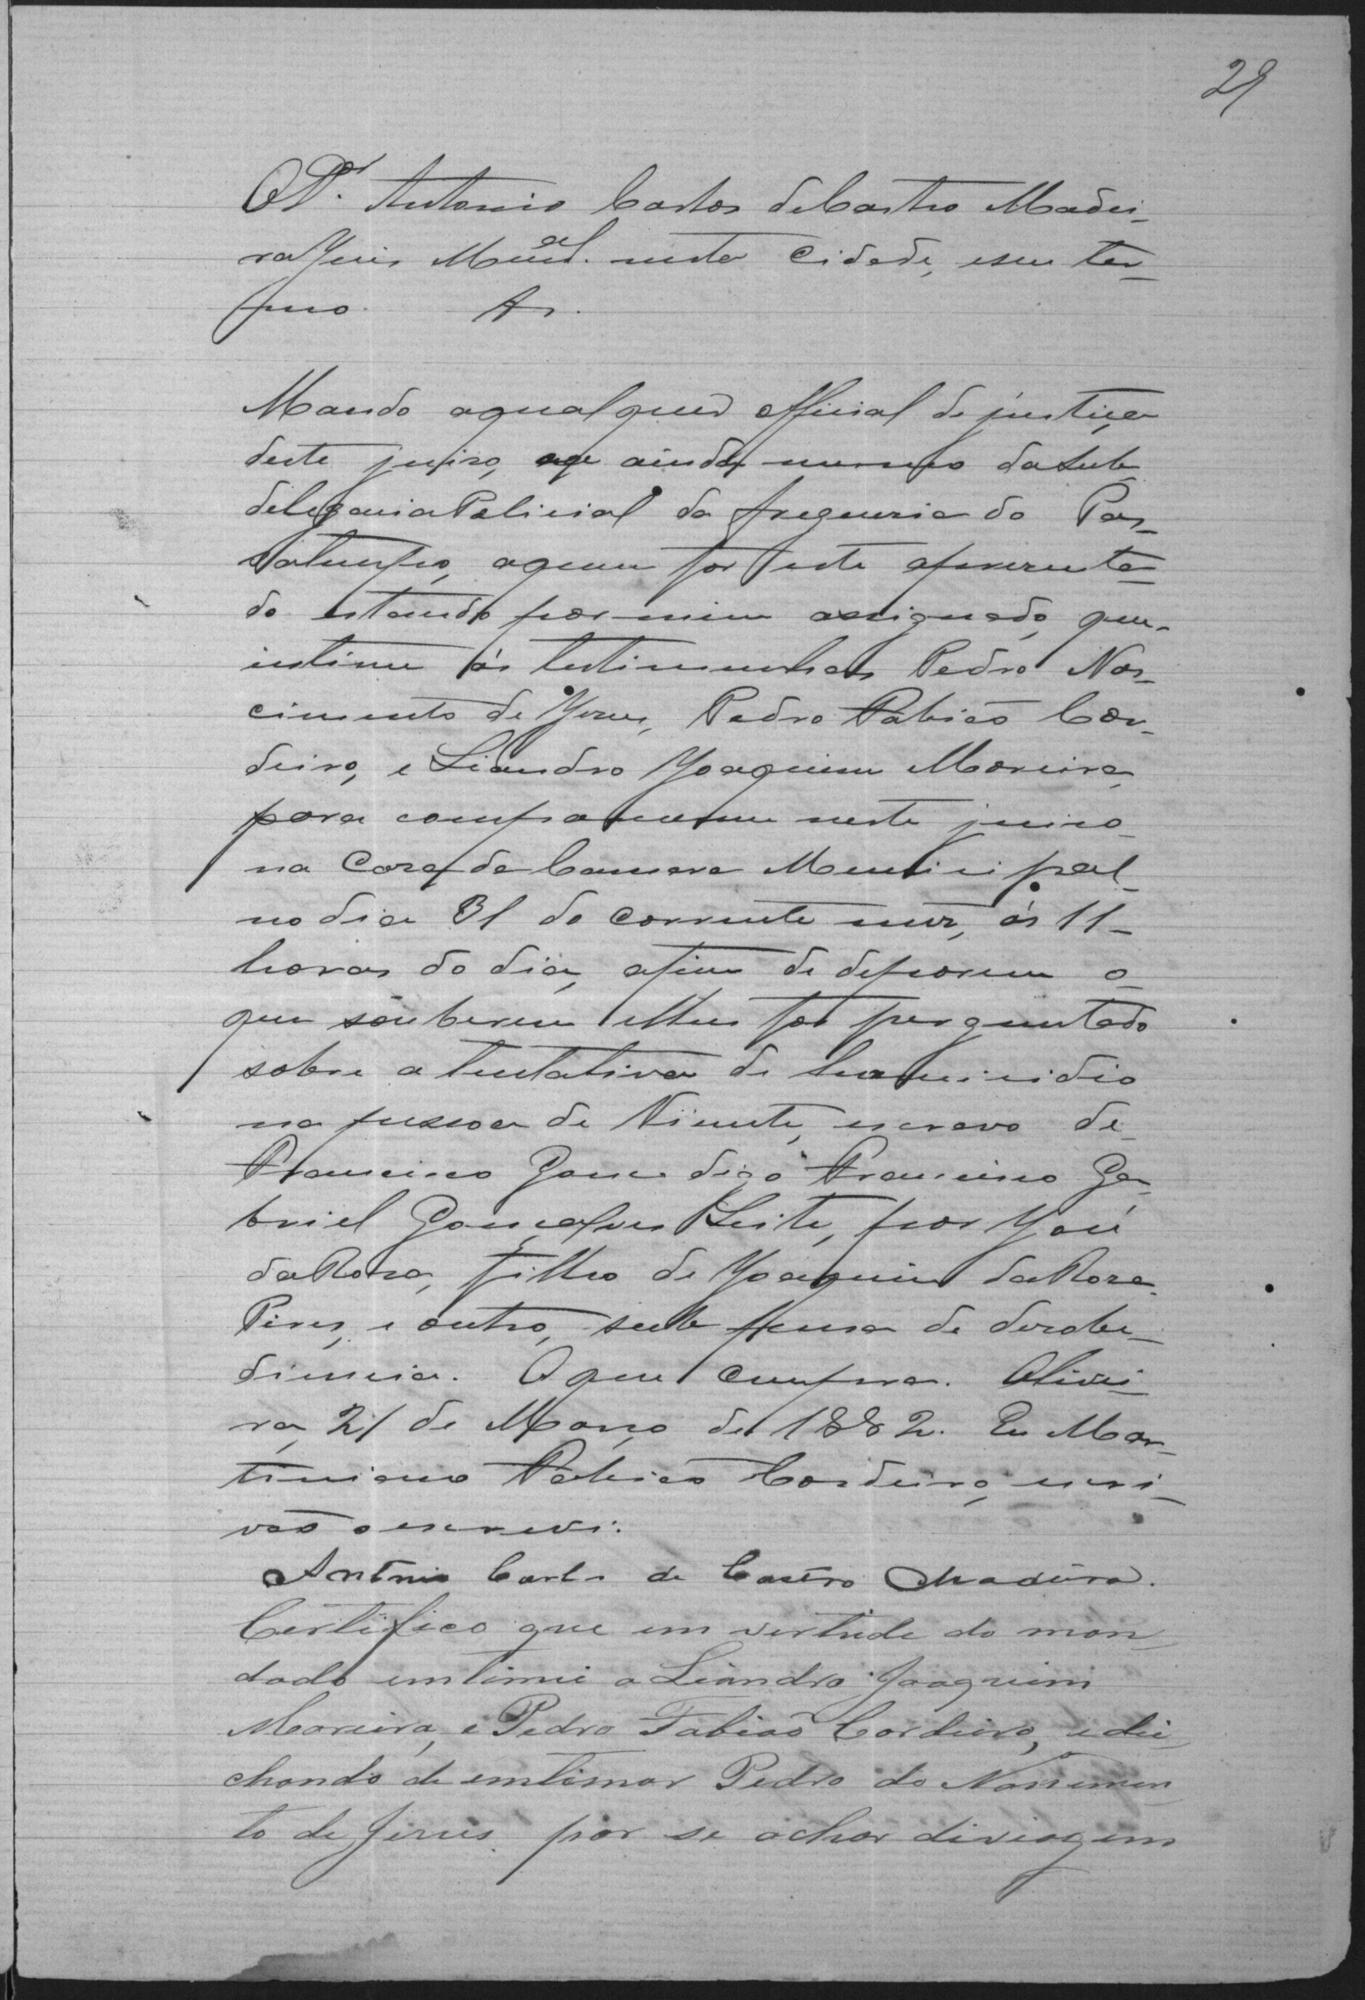 29
O Dr. Antonio Carlos de Castro Madei-
ra Juis Mun.al nesta Cidade, e seu ter-
mo. &.
Mando a qualquer official de justiça
deste juiso, ou ainda mesmo da Sub
delegacia Policial da freguezia do Pas-
satempo, a quem for este aprezenta-
do estando por mim assignado, que-
intime ás testimunhas Pedro Nas-
cimento de Jezus, Pedro Fabião Cor-
deiro, e Liandro Joaquim Moreira,
para comparecerem neste juiso
na Caza da Camara Municipal-
no dia 31 do corrente mez, ás 11-
horas do dia, afim de deporem o-
que souberem e lhes for perguntado
sobre a tentativa de homicidio
na pessoa de Vicente, escravo de-
Francisco Gonc digo Francisco Ga-
briel Gonçalves Leite, por José
da Roza, filho de Joaquim da Roza
Pires, e outro, sub pena de dezobe-
diencia. O que cumpra. Olivei-
ra, 21 de Março de 1882. Eu Mar-
tiniano Fabião Cordeiro, escri-
vão o escrevi.
Antonio Carlos de Castro Madeira.
Certifico que em vertude do man
dado emtimei a Leandro Joaquim
Moreira, e Pedro Fabião Cordeiro, e dei
chando de emtimar Pedro do Nassimen
to de Jezus por se achar diviagem